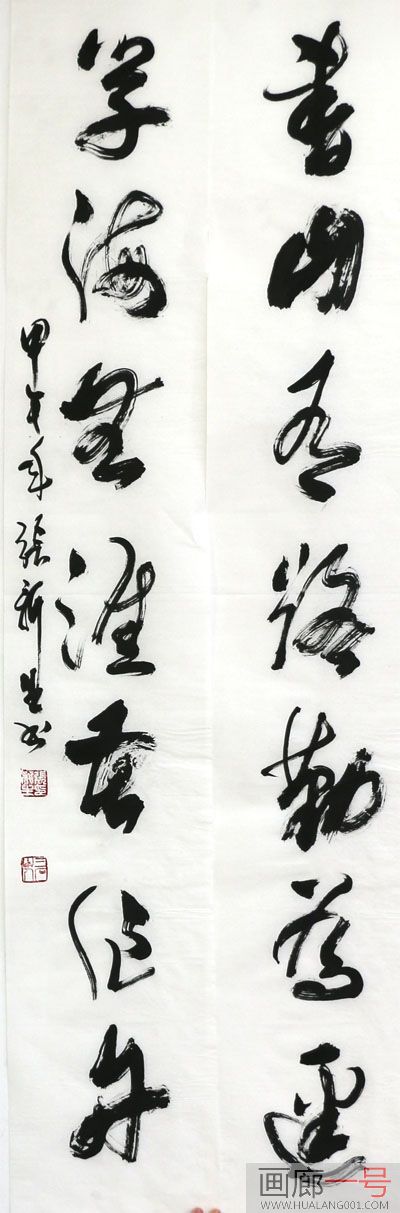 書山有路勤為迳
学海無涯苦作舟
甲午年張新生书
画廊一号
WWW.HUALANG001.COM